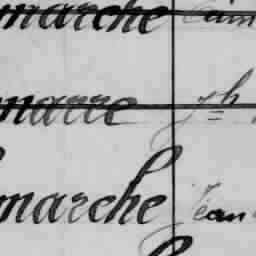 marche
marre Jh
marche Jean